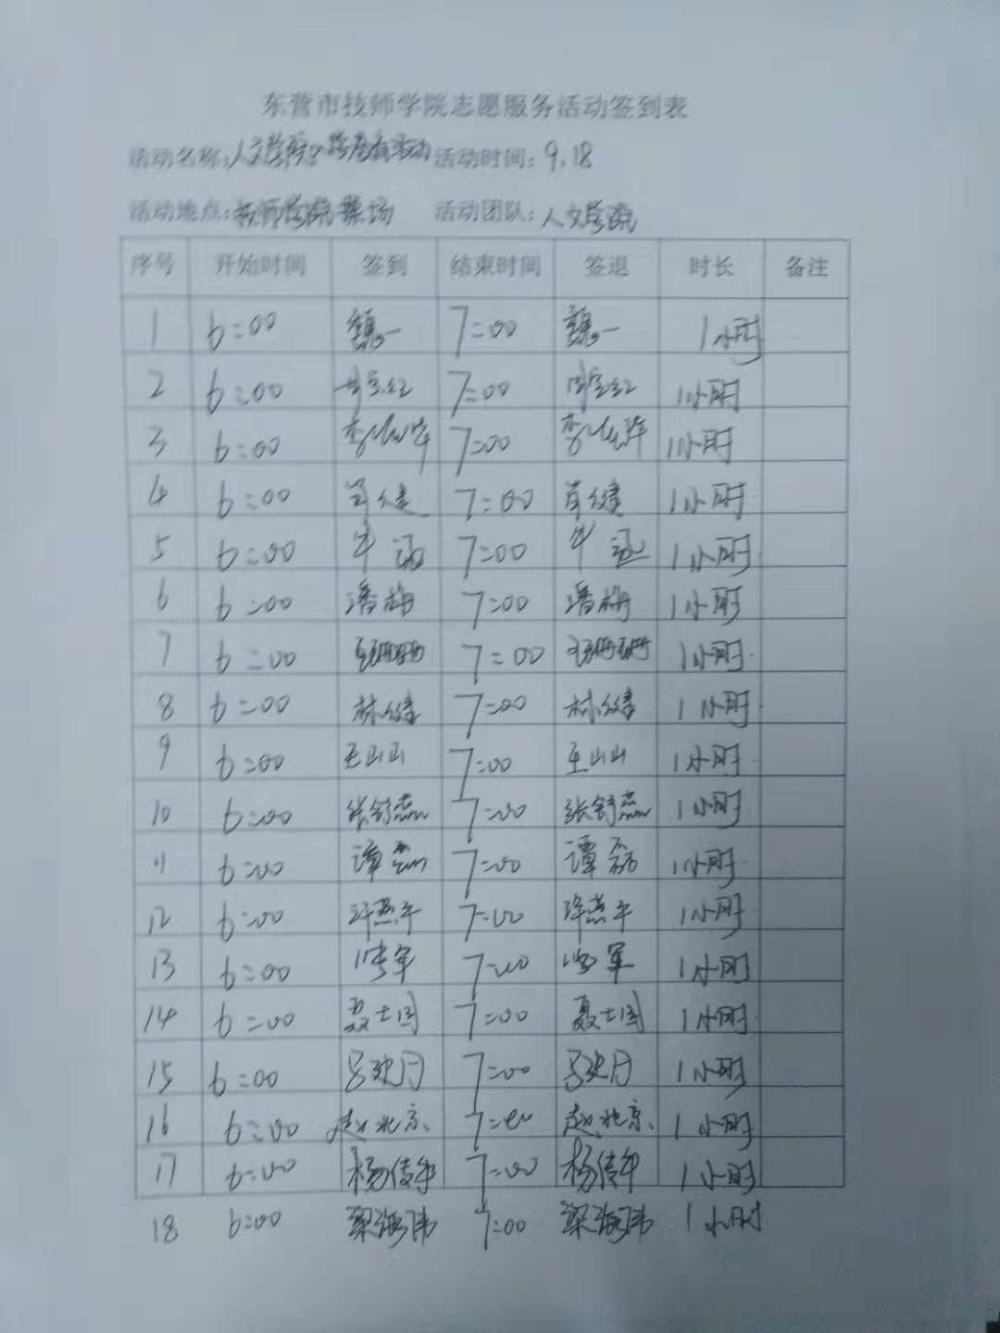 东营市技师学院志愿服务活动签到表
活动名称:人文学院 活动时间:9.18
活动地点:技师学院操场 活动团队:人文学院
序号 开始时间 签到 结束时间 签退 时长 备注
1 6:00 魏一 7:00 魏一 1小时
2 6:00 7:00 1小时
3 6:00 7:00 1小时
4 6:00 肖健 7:00 肖健 1小时
5 6:00 牛 7:00 牛 1小时
6 6:00 潘梅 7:00 潘梅 1小时
7 6:00 王珊珊 7:00 王珊珊 1小时
8 6:00 林健 7:00 林健 1小时
9 6:00 王山山 7:00 王山山 1小时
10 6:00 张舒蕊 7:00 张舒蕊 1小时
11 6:00 谭磊 7:00 谭磊 1小时
12 6:00 许燕平 7:00 许燕平 1小时
13 6:00 军 7:00 军 1小时
14 6:00 聂士国 7:00 聂士国 1小时
15 6:00 7:00 1小时
16 6:00 赵北京 7:00 赵北京 1小时
17 6:00 杨倩华 7:00 杨倩华 1小时
18 6:00 梁海伟 7:00 梁海伟 1小时